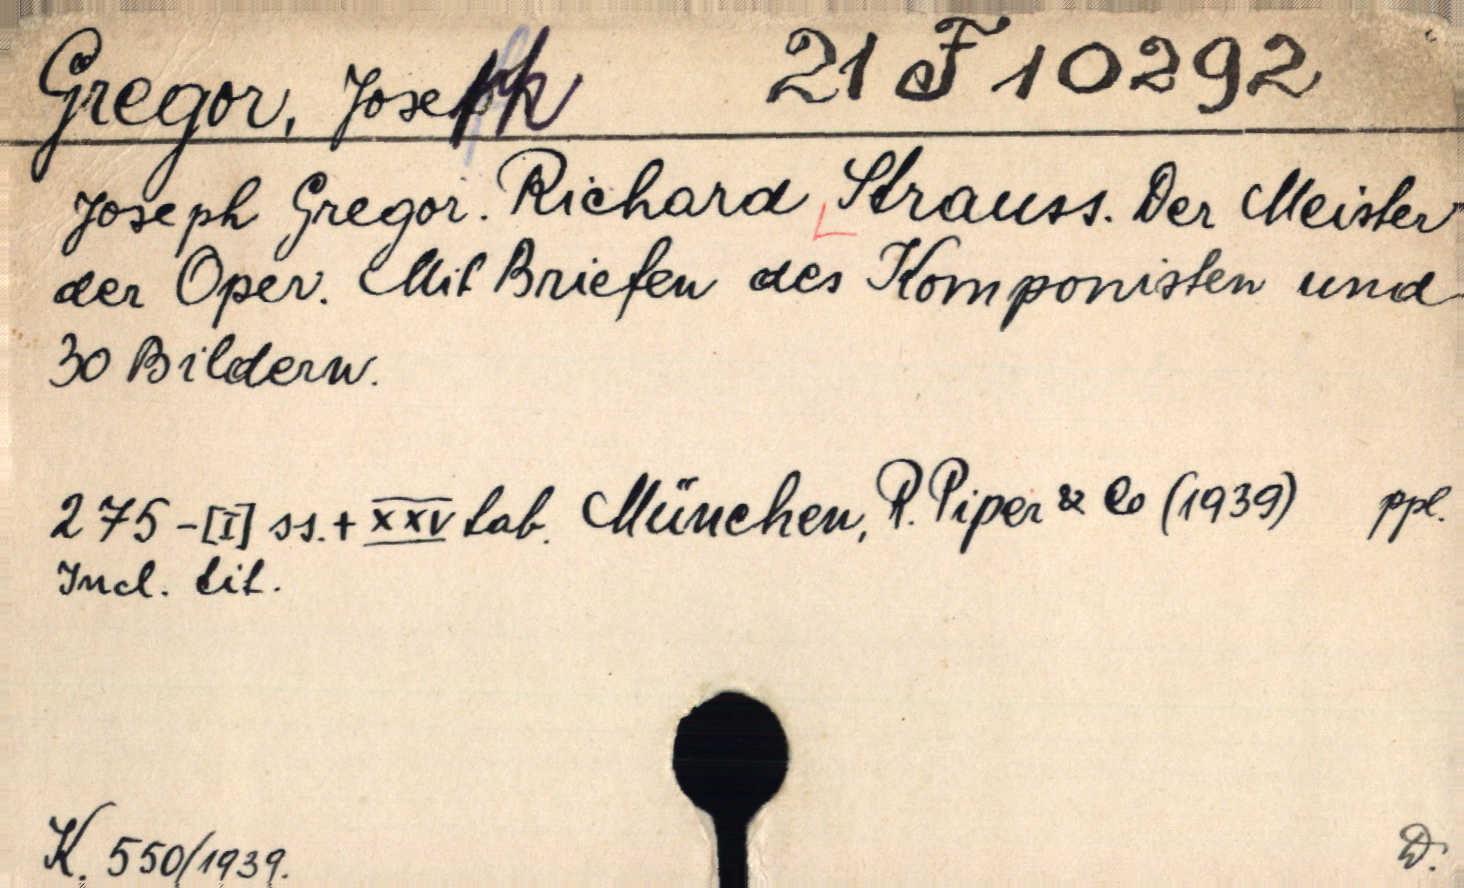 Gregor, Joseph 21 F 10292
Joseph Gregor. Richard Strauss. Der Meister
der Oper. Mit Briefen des Komponisten und
30 Bildern.
275-[I] ss. + XXV tab. München, R. Piper & Co (1939) ppl.
Incl. tit.
K. 550/1939. D.